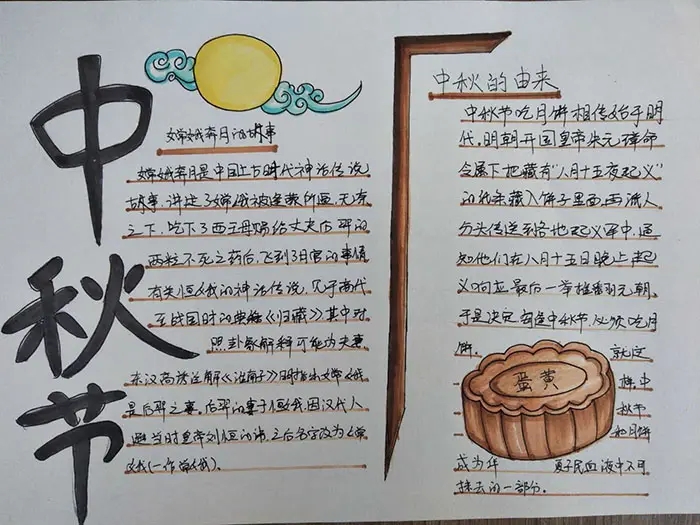 中秋节
嫦娥奔月的故事
嫦娥奔月是中国上古时代神话传说
故事，讲述了嫦娥被逢蒙所逼，无奈
之下，吃下了西王母赐给丈夫后羿的
两粒不死之药后，飞到了月宫的事情
有关恒娥的神话传说，见于商代
至战国时的典籍《归藏》其中对
照卦象解释可能为夫妻
东汉高诱注解《淮南子》明指出嫦娥
是后羿之妻，后羿的妻子恒娥，因汉代人
避当时皇帝刘恒的讳，之后名字改为嫦
娥（一作常娥）.
中秋的由来
中秋节吃月饼相传始于明
代，明朝开国皇帝朱元璋命
令属下把藏有“八月十五夜起义”
的纸条藏入饼子里面再派人
分头传送到各地起义军中，通
知他们在八月十五日晚上起
义响应最后一举推翻元朝，
于是决定每逢中秋节，必须吃月
饼. 就这
蛋黄
样中
秋节
和月饼
成为华 夏子民血液中不可
抹去的一部分.